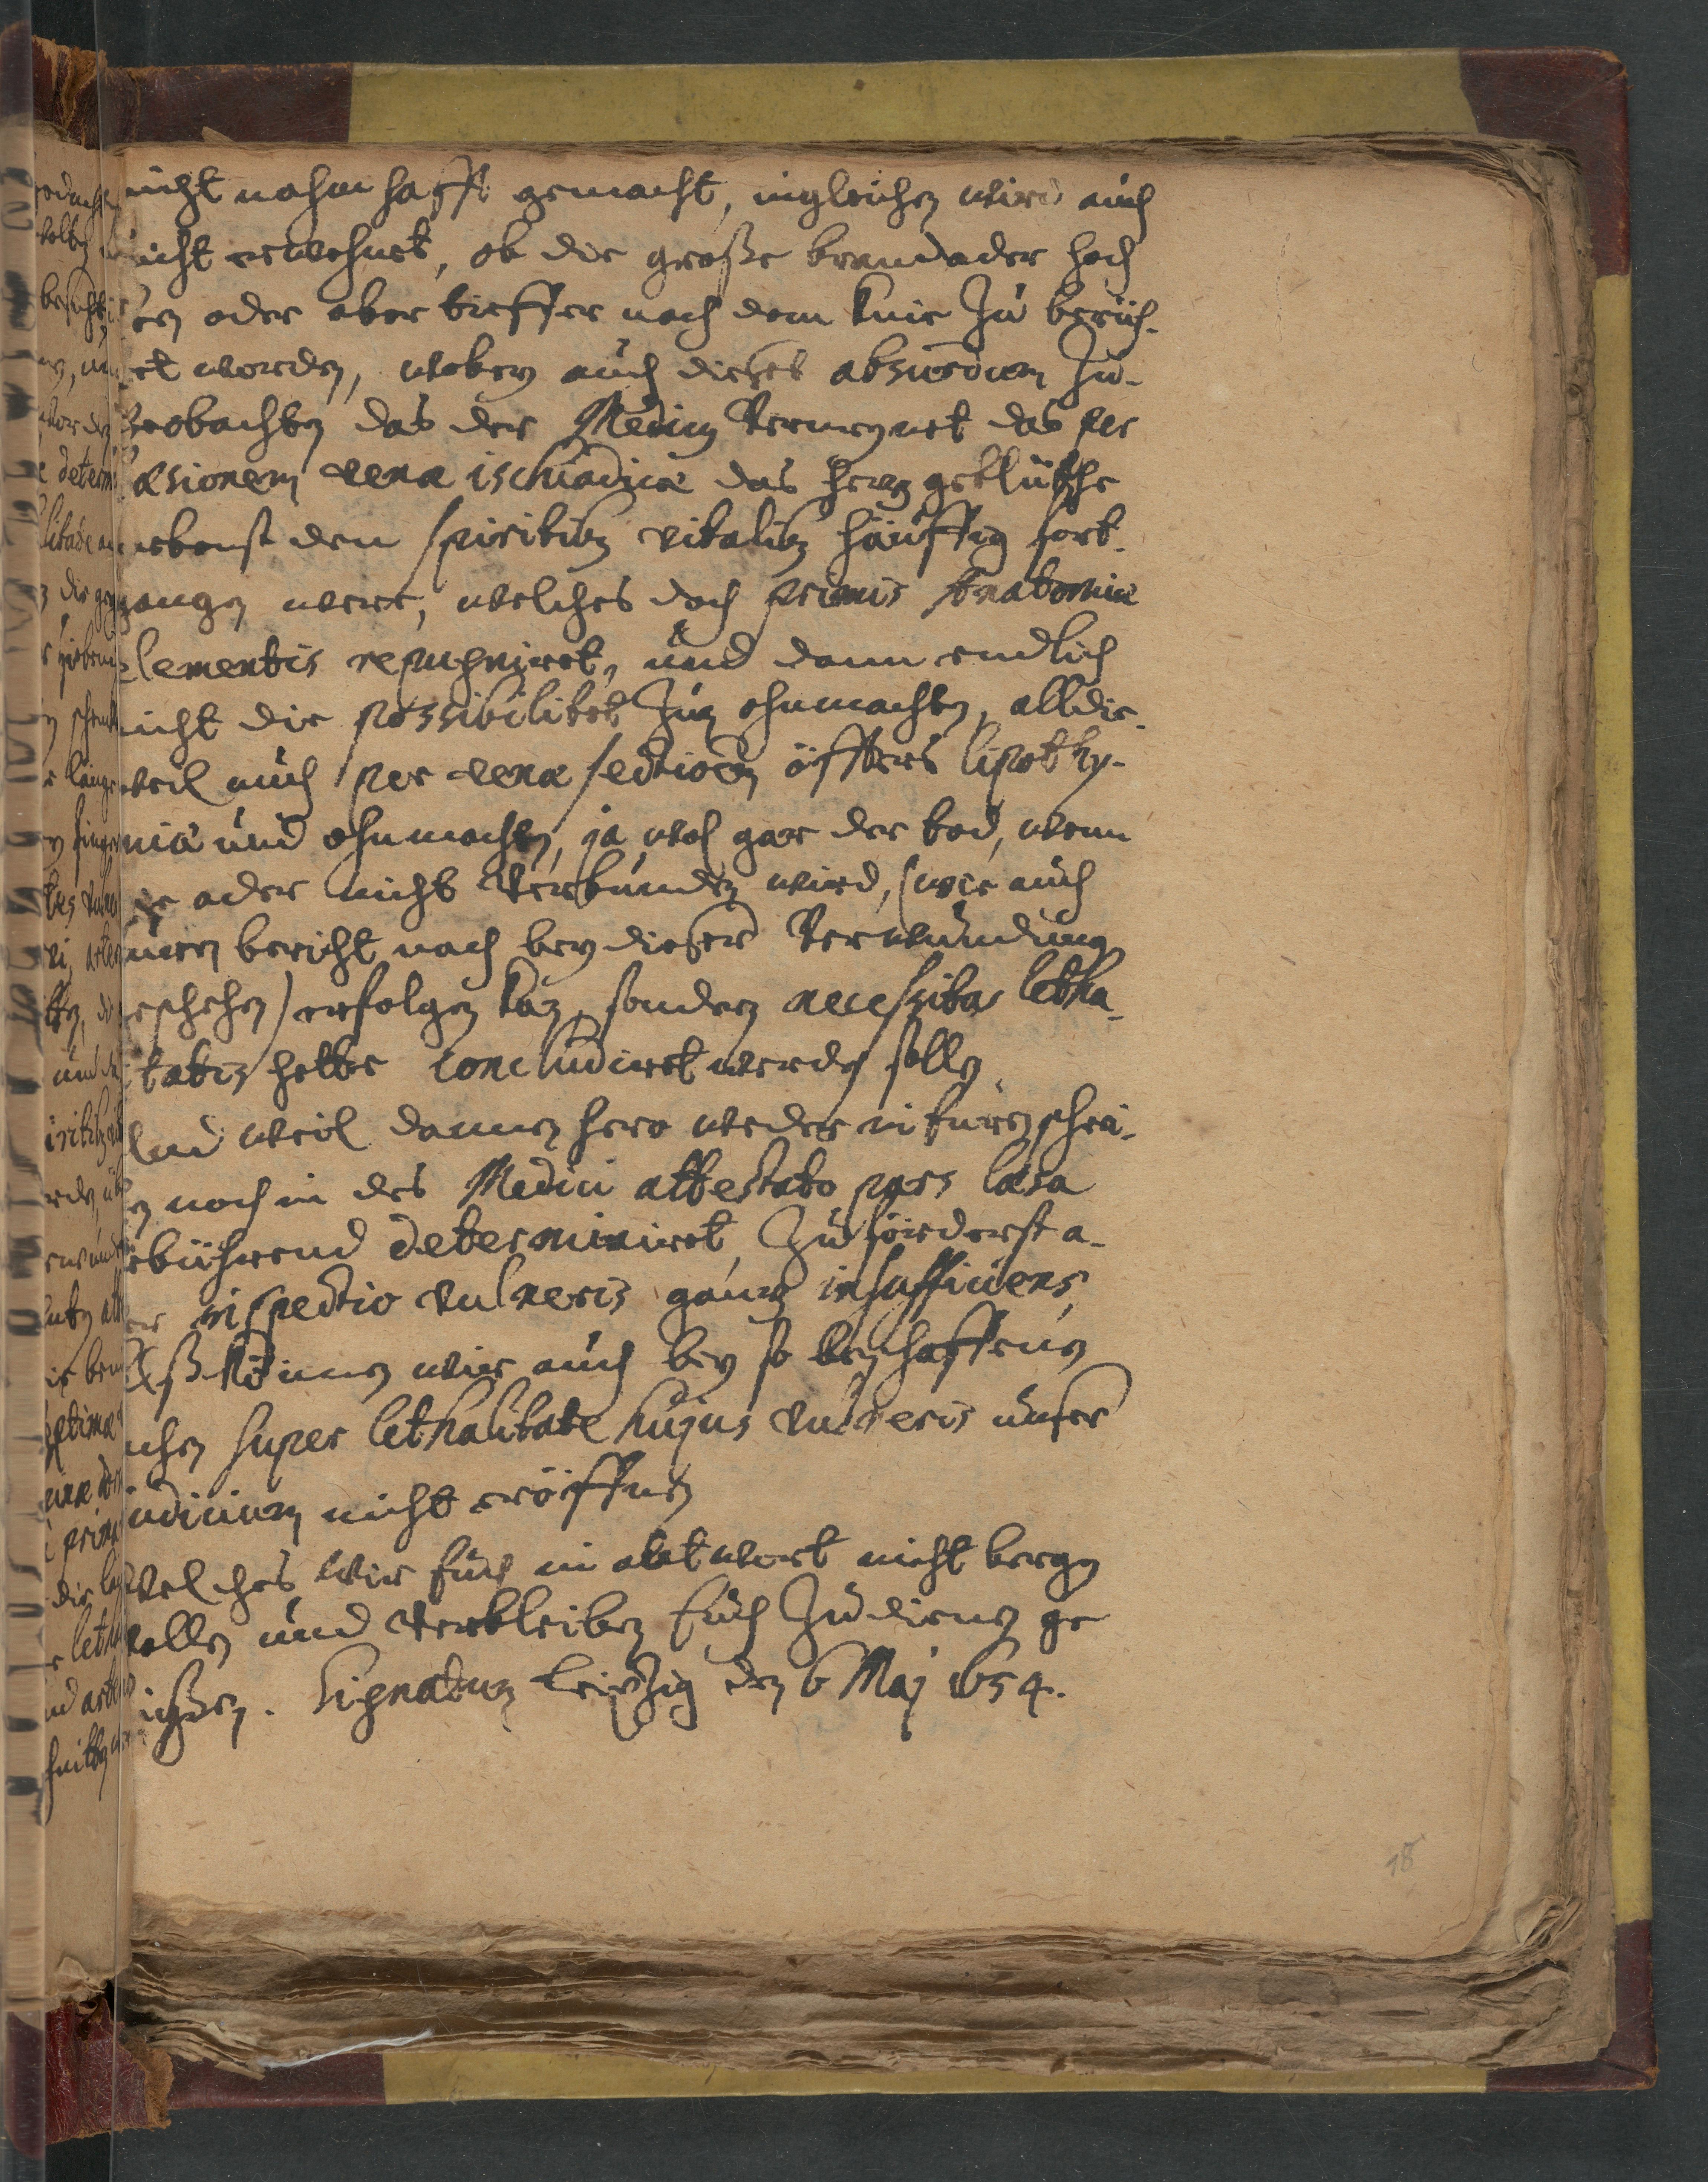 nicht nahmhafft gemacht, ingleichen wird auch
nicht erwehnet, ob die große brandader hoch
oben oder aber tieffer nach dem knie zu berüh-
ret worden, wobey auch dieses absurdum zu-
beobachten das der Medicus vermeynet das per
laesionem venae ischiadicae das hertzgeblüthe
nebenst den spiritibus vitalibus häuffig fort-
gangen were, welches doch primis Anatomiae
elementis repugniret, und dann endlich
nicht die possibilitet zun ohnmachten, alldie-
weil auch per venae sectionem öffters lipothy-
mia und ohnmachten, ja wol gar der tod, wenn
die ader nicht verbunden wird, (wie auch
euren bericht nach bey dieser verwundung
geschehen) erfolgen kan, sondern necessitas letha-
litatis hette concludiret werden sollen.
Und weil dannenhero weder in euren schrei-
ben noch in des Medici attestato pars laesa
gebührend determiniret, zuförderst a-
ber inspectio vulneris gantz insufficiens,
Alß können wir auch bey so beschaffenen
sachen super lethalitate hujus vulneris unser
judicium nicht eröffnen
Welches wir Euch in antwort nicht bergen
wollen und verbleiben Euch zudienen ge
flißen. Signatum Leipzig den 6 Maj 1654.
18